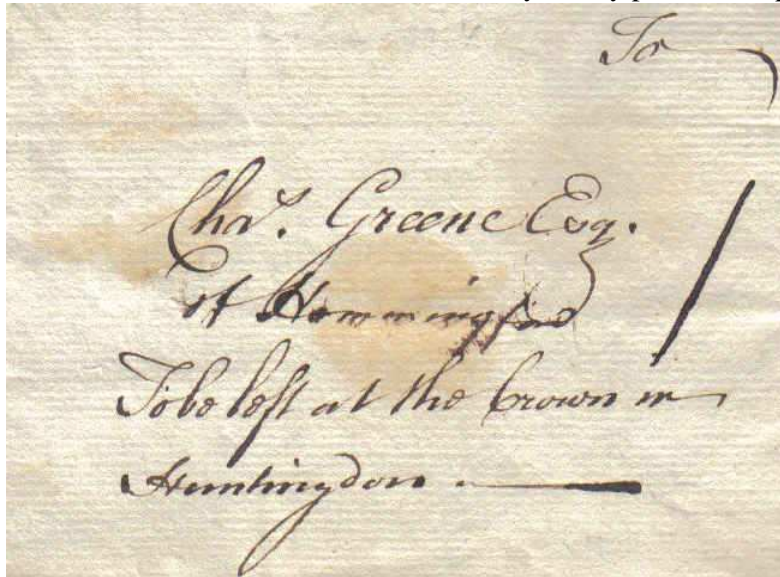 To
Chas. Greene Esq.
at Hemmingford
To be left at the Crown in
Huntingdon